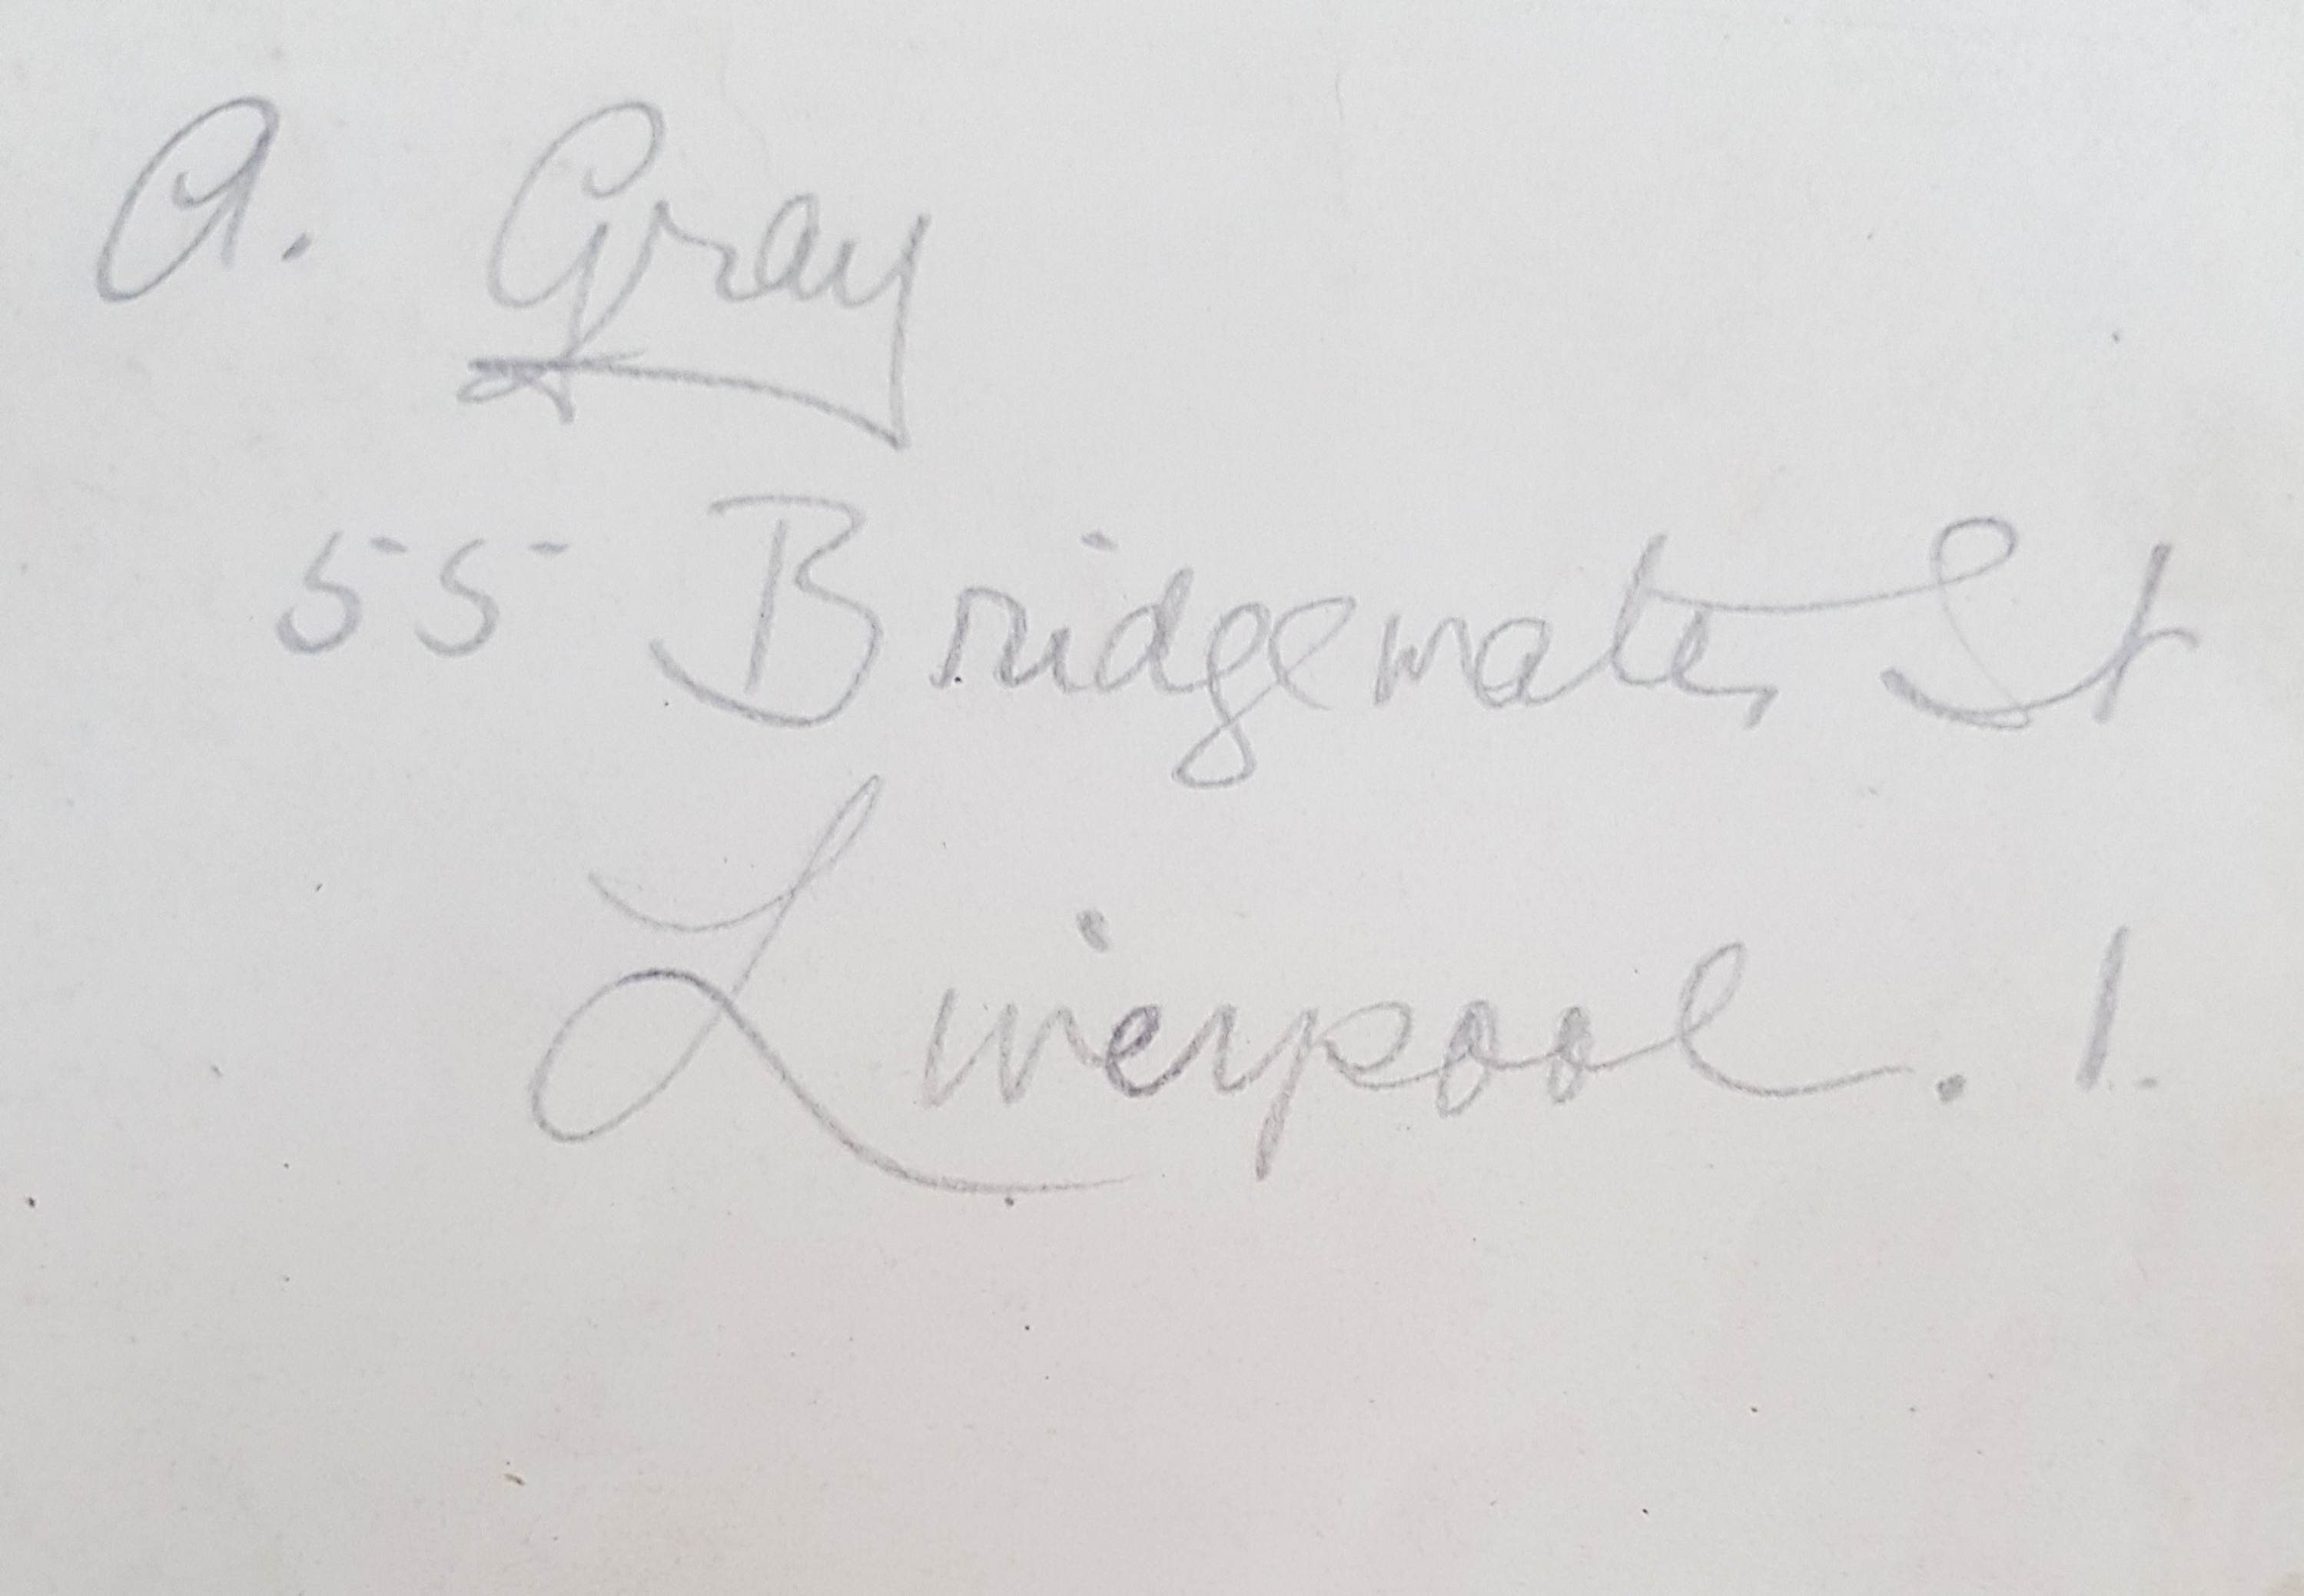 A. Gray
55 Bridgewater St
Liverpool. 1.